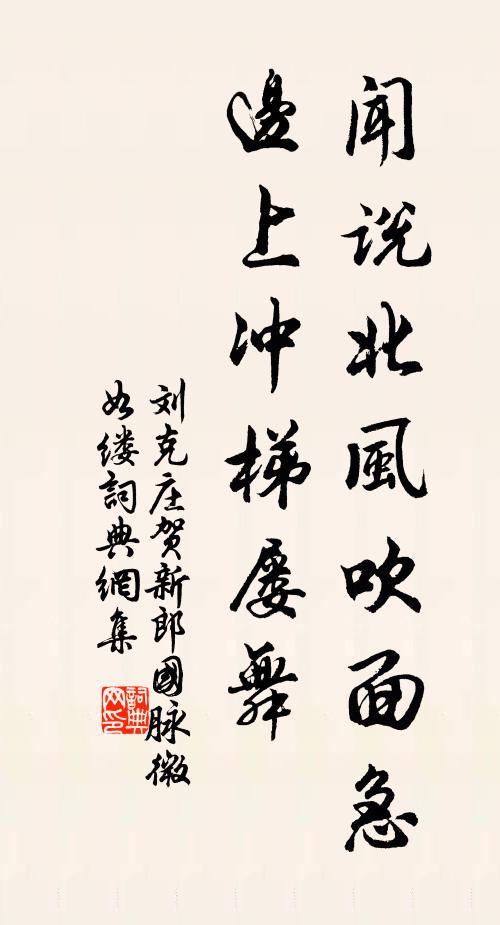 闻说北風吹面急
邊上冲梯屡舞
刘克庄贺新郎國脉微
如缕詞典網集
詞典
网印